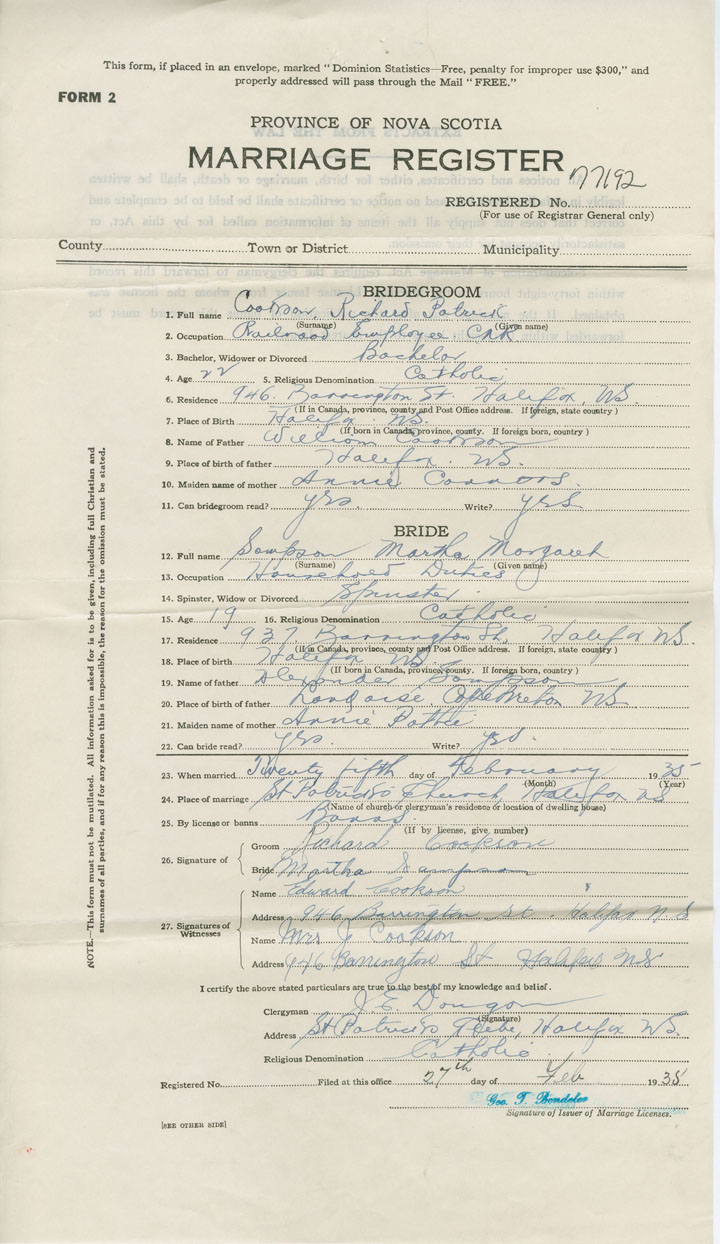 This form, if placed in an envelope, marked "Dominion Statistics—Free, penalty for improper use $300," and
properly addressed will pass through the Mail "FREE."
FORM 2
PROVINCE OF NOVA SCOTIA
MARRIAGE REGISTER
77192
REGISTERED No.
(For use of Registrar General only)
County Town or District Municipality
BRIDEGROOM
1. Full name Cookson, Richard Patrick
(Surname) (Given name)
2. Occupation Railroad Employee. CNR
3. Bachelor, Widower or Divorced Bachelor
4. Age 22 5. Religious Denomination Catholic
6. Residence 946. Barrington St. Halifax, NS
(If in Canada, province, county and Post Office address. If foreign, state country)
7. Place of Birth Halifax NS.
(If born in Canada, province, county. If foreign born, country)
8. Name of Father William Cookson
9. Place of birth of father Halifax. NS.
10. Maiden name of mother Annie Connors.
11. Can bridegroom read? yes. Write? yes
BRIDE
12. Full name Sampson Martha Margaret
(Surname) (Given name)
13. Occupation Household Duties
14. Spinster, Widow or Divorced Spinster
15. Age 19 16. Religious Denomination Catholic
17. Residence 937 Barrington St, Halifax NS.
(If in Canada, province, county and Post Office address. If foreign, state country)
18. Place of birth Halifax NS.
(If born in Canada, province, county. If foreign born, country)
19. Name of father Alexander Sampson
20. Place of birth of father Cape Breton NS
21. Maiden name of mother Annie
22. Can bride read? yes. Write? yes.
23. When married Twenty fifth day of February 1935
(Month) (Year)
24. Place of marriage St Patrick's Church, Halifax NS
(Name of church or clergyman's residence or location of dwelling house)
25. By license or banns Banns
(If by license, give number)
26. Signature of
Groom Richard Cookson
Bride Martha Sampson
27. Signatures of Witnesses
Name Edward Cookson
Address 946 Barrington St. Halifax N S
Name Mrs J Cookson
Address 946 Barrington St Halifax NS
I certify the above stated particulars are true to the best of my knowledge and belief.
Clergyman J. E.
(Signature)
Address St Patrick's Glebe, Halifax NS.
Religious Denomination Catholic
Registered No. Filed at this office 27th day of Feb 1935
Geo. T.
Signature of Issuer of Marriage Licenses.
[SEE OTHER SIDE]
NOTE.—This form must not be mutilated. All information asked for is to be given, including full Christian and
surnames of all parties, and if for any reason this is impossible, the reason for the omission must be stated.